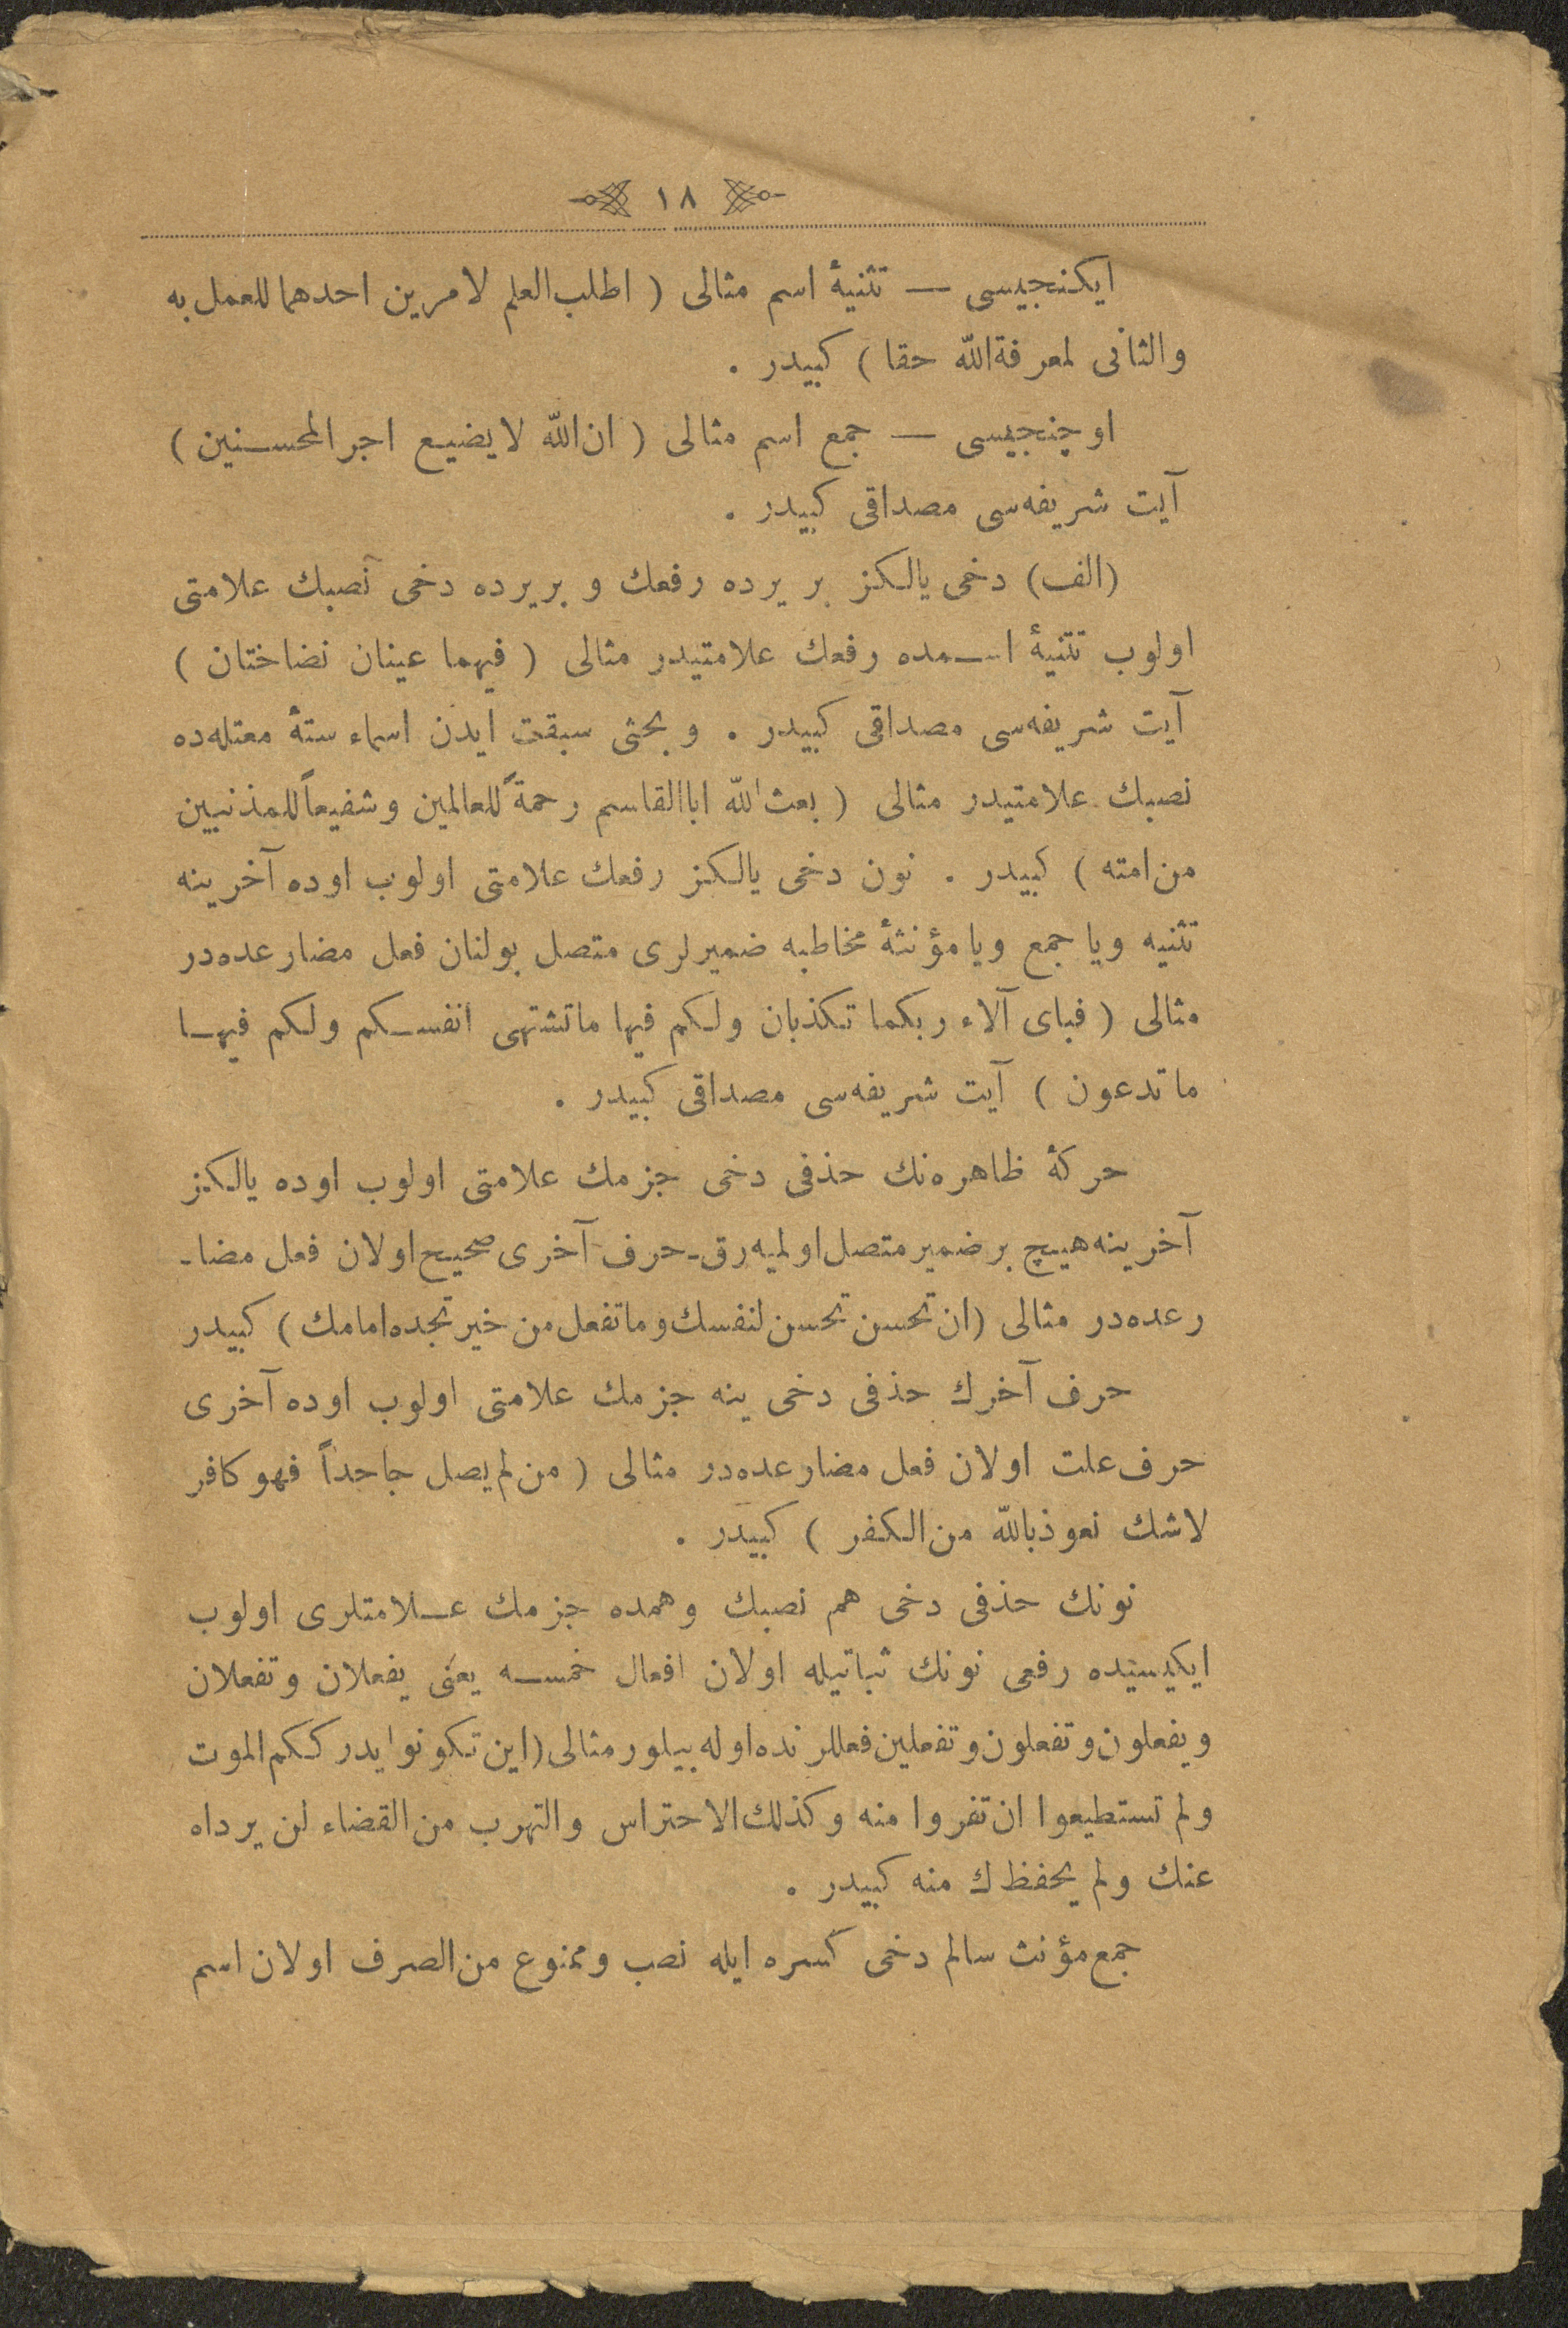 ١٨
ايكنجيسى — تثنيهٔ اسم مثالى ( اطلب‌العلم لامرين احدهما للعمل به
والثانى لمعرفةالله حقا ) كبيدر .
اوچنجيسى — جمع اسم مثالى ( ان‌الله لايضيع اجرالمحسنين )
آيت شريفه‌سى مصداقى كبيدر .
(الف) دخى يالكز بر يرده رفعك و بر يرده دخى نصبك علامتى
اولوب تثنيهٔ اسمده رفعك علامتيدر مثالى ( فيهما عينان نضاختان )
آيت شريفه‌سى مصداقى كبيدر . و بحثى سبقت ايدن اسماء ستهٔ معتله‌ده
نصبك علامتيدر مثالى ( بعث‌الله اباالقاسم رحمةً للعالمين وشفيعاً للمذنبين
من‌امته ) كبيدر . نون دخى يالكز رفعك علامتى اولوب اوده آخرينه
تثنيه ويا جمع ويا مؤنثهٔ مخاطبه ضميرلرى متصل بولنان فعل مضارعده‌در
مثالى ( فباى آلاء ربكما تكذبان ولكم فيها ماتشتهى انفسكم ولكم فيها
ماتدعون ) آيت شريفه‌سى مصداقى كبيدر .
حركهٔ ظاهره‌نك حذفى دخى جزمك علامتى اولوب اوده يالكز
آخرينه هيچ بر ضمير متصل اولميه‌رق حرف آخرى صحيح اولان فعل مضا-
رعده‌در مثالى (ان تحسن تحسن لنفسك وماتفعل من خير تجده امامك) كبيدر
حرف آخرك حذفى دخى ينه جزمك علامتى اولوب اوده آخرى
حرف علت اولان فعل مضارعده‌در مثالى ( من لم يصل جاحداً فهو كافر
لاشك نعوذبالله من‌الكفر ) كبيدر .
نونك حذفى دخى هم نصبك وهمده جزمك علامتلرى اولوب
ايكيسنده رفعى نونك ثباتيله اولان افعال خمسه يعنى يفعلان وتفعلان
ويفعلون وتفعلون وتفعلين فعللرنده اوله‌بيلور مثالى (اين تكونوا يدرككم‌الموت
ولم تستطيعوا ان‌تفروا منه وكذلك‌الاحتراس والتهرب من‌القضاء لن يرداه
عنك ولم يحفظاك منه كبيدر .
جمع مؤنث سالم دخى كسره ايله نصب وممنوع من‌الصرف اولان اسم